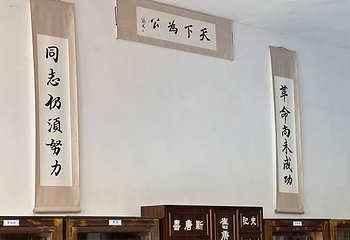 天下為公
革命尚未成功
同志仍須努力
史記
舊唐書
新唐書